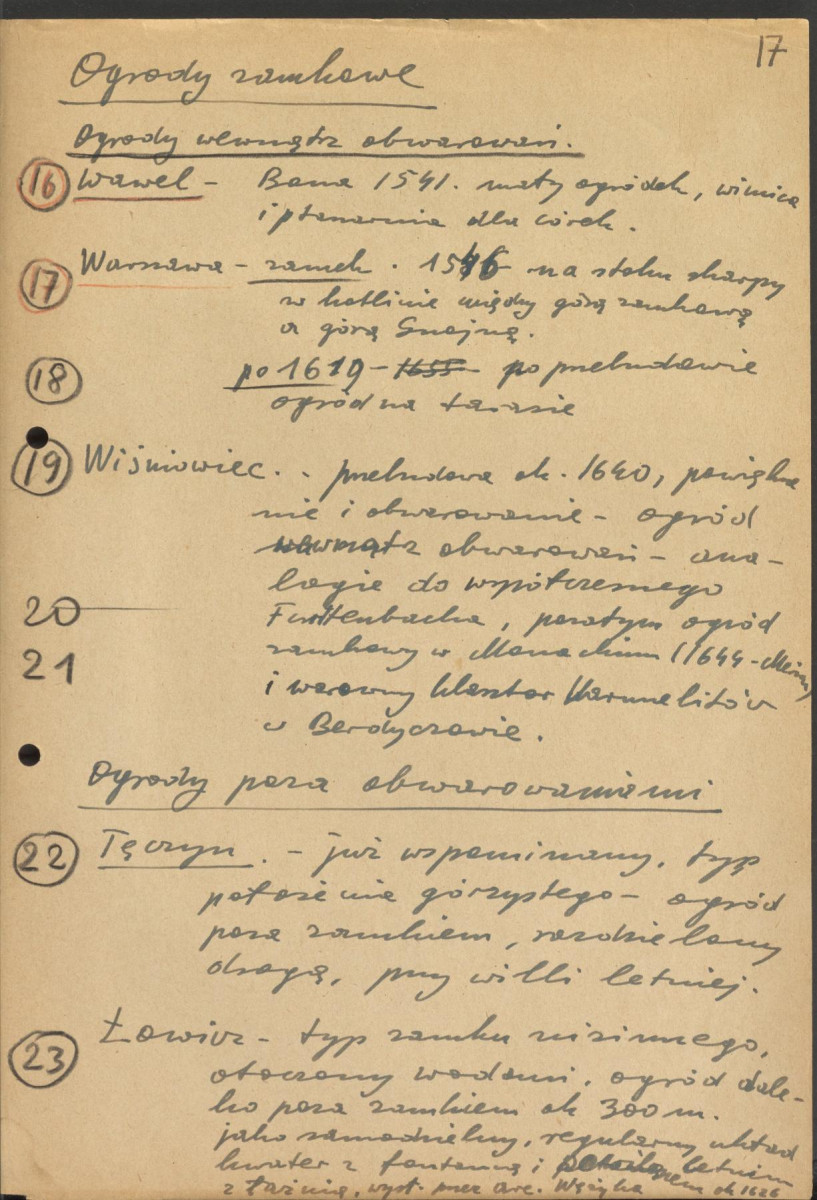 17
Ogrody zamkowe
Ogrody wewnątrz obwarowań.
16 Wawel - Bona 1541. mały ogródek, winnica
i ptaszarnia dla córek.
17 Warszawa - zamek. 1546 - na stoku skarpy
w kotlinie między górą zamkową
a górą Gnojną.
18 po 1619 - 1655 - po przebudowie
ogród na tarasie
19 Wiśniowiec. - przebudowa ok. 1640, powiększe
nie i obwarowanie - ogród
wewnątrz obwarowań - ana-
logie do współczesnego
20 Furttenbacha, pozatym ogród
21 zamkowy w Monachium (1644 - Merian)
i warowny klasztor Karmelitów
w Berdyczowie.
Ogrody poza obwarowaniami
22 Tęczyn. - już wspominany, typ
położenia górzystego - ogród
poza zamkiem, rozdzielony
drogą, przy willi letniej.
23 Łowicz - typ zamku nizinnego,
otoczony wodami. ogród dale-
ko poza zamkiem ok 300 m.
jako samodzielny, regularny układ
kwater z fontanną i letnim
z łaźnią, wyst. przez arc. Wężyka ok 1626